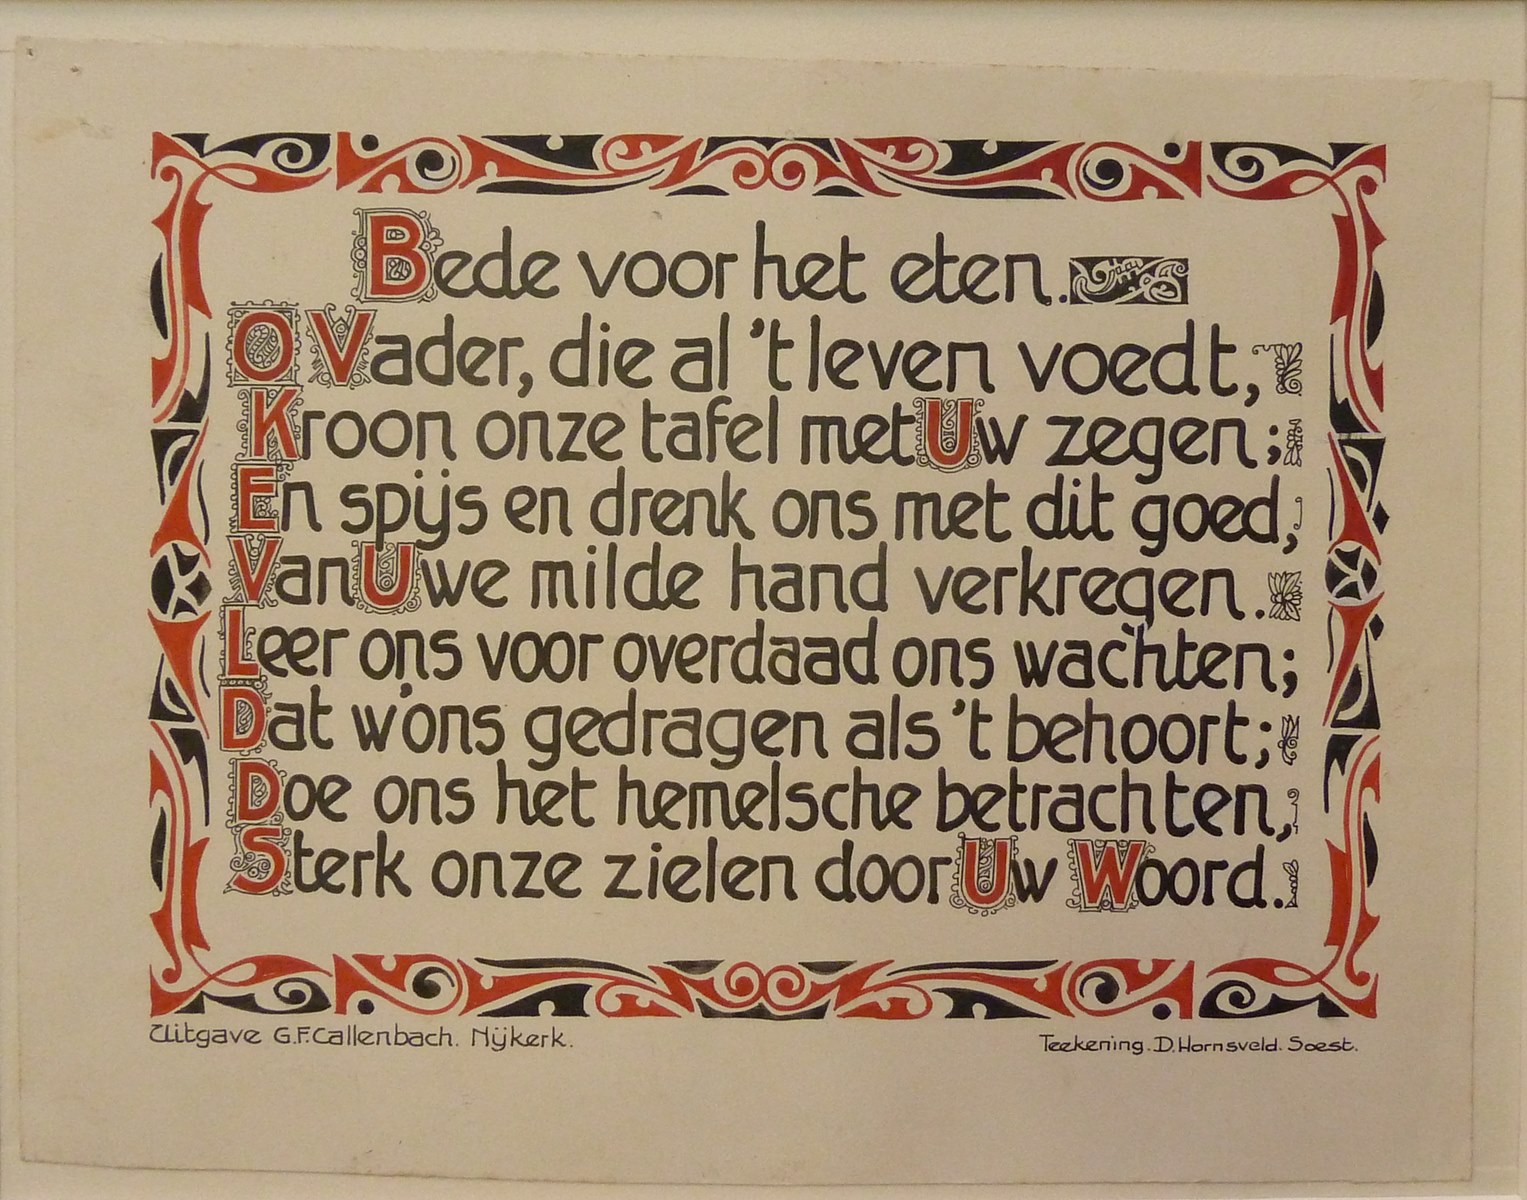 Bede voor het eten.
O Vader, die al 't leven voedt,
Kroon onze tafel met Uw zegen;
En spijs en drenk ons met dit goed,
Van Uwe milde hand verkregen.
Leer ons voor overdaad ons wachten;
Dat w'ons gedragen als 't behoort;
Doe ons het hemelsche betrachten,
Sterk onze zielen door Uw Woord.
Uitgave G.F. Callenbach. Nijkerk.
Teekening. D. Hornsveld. Soest.